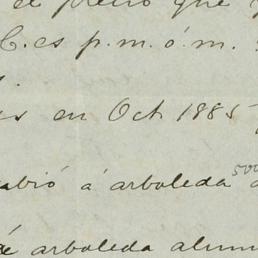 el precio que
C.es p.m. ó. m.
es en Oct 1885
abió á arboleda
500
é arboleda alum